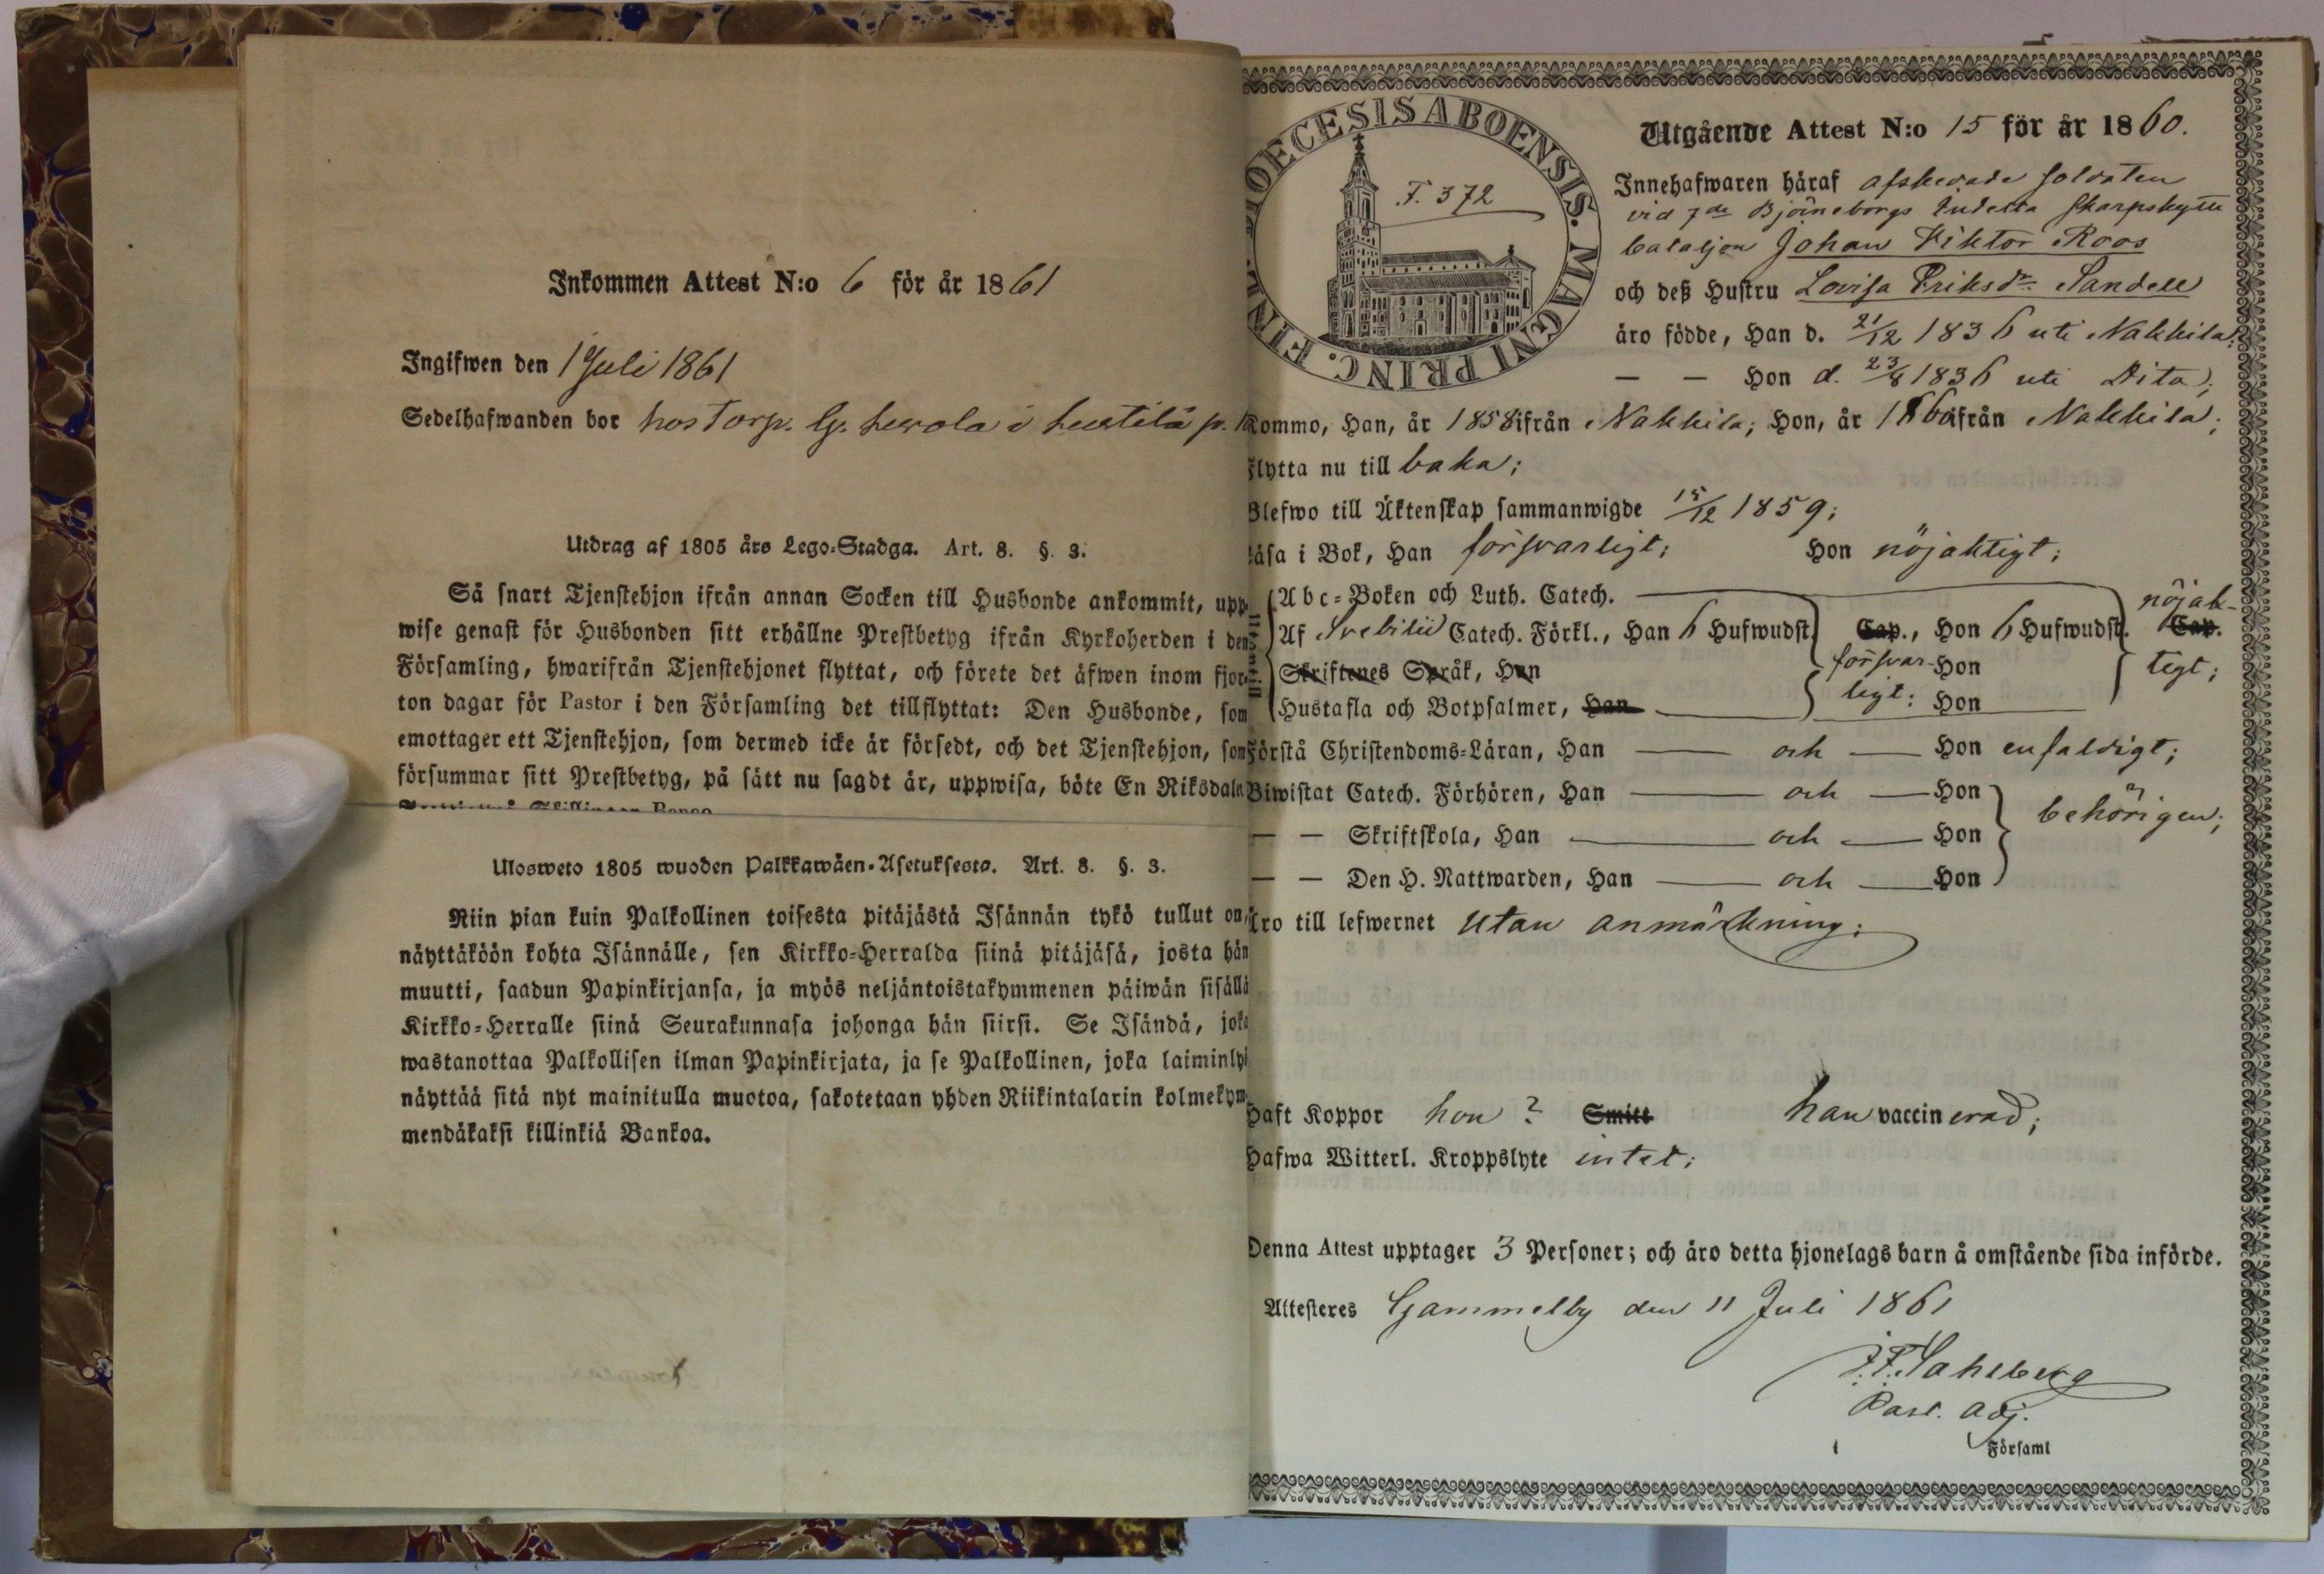 Inkommen Attest N:o 6 för år 1861
Ingifwen den 1 Juli 1861
Sedelhafwanden bor hos Torp. i p.
Utdrag af 1805 års Lego-Stadga. Art. 8. §. 3.
Så snart Tjenstehjon ifrån annan Socken till Husbonde ankommit, upp-
wise genast för Husbonden sitt erhållne Prestbetyg ifrån Kyrkoherden i den
Församling, hwarifrån Tjenstehjonet flyttat, och förete det äfwen inom fjor-
ton dagar för Pastor i den Församling det tillflyttat: Den Husbonde, som
emottager ett Tjenstehjon, som dermed icke är försedt, och det Tjenstehjon, som
försummar sitt Prestbetyg, på sätt nu sagdt är, uppwisa, böte En Riksdaler
Ulosweto 1805 wuoden Palkkawäen-Asetuksesta. Art. 8. §. 3.
Niin pian kuin Palkollinen toisesta pitäjästä Isännän tykö tullut on,
näyttäköön kohta Isännälle, sen Kirkko-Herralda siinä pitäjäsä, josta hän
muutti, saadun Papinkirjansa, ja myös neljäntoistakymmenen päiwän sisällä
Kirkko-Herralle siinä Seurakunnasa johonga hän siirsi. Se Isändä, joka
wastanottaa Palkollisen ilman Papinkirjata, ja se Palkollinen, joka laiminlyö
näyttää sitä nyt mainitulla muotoa, sakotetaan yhden Riikintalarin kolmekym-
mendäkaksi killinkiä Bankoa.
DIOECESIS ABOENSIS. MAGNI PRINC. FINL.
F. 372
Utgående Attest N:o 15 för år 1860.
Innehafwaren häraf afskedade Soldaten
vid 7de Björneborgs Indelta Skarpskytte
bataljon Johan Viktor Roos
och deß Hustru Lovisa Eriksdr. Sandell
äro födde, Han d. 21/12 1836 uti Nakkila;
— — Hon d. 23/8 1836 uti Dito;
Kommo, Han, år 1858 ifrån Nakkila; Hon, år 1860 ifrån Nakkila;
Flytta nu till baka;
Blefwo till Äktenskap sammanwigde 15/12 1859;
Läsa i Bok, Han försvarligt; Hon nöjaktigt;
Abc-Boken och Luth. Catech. nöjak-
Af Svebilii Catech. Förkl., Han 6 Hufwudst. Cap., Hon 6 Hufwudst. Cap.
Skriftenes Språk, Han försvar- Hon tigt;
Hustafla och Botpsalmer, Han ligt: Hon
Förstå Christendoms-Läran, Han — och — Hon enfaldigt;
Biwistat Catech. Förhören, Han — och — Hon behörigen;
— — Skriftskola, Han — och — Hon
— — Den H. Nattwarden, Han — och — Hon
Äro till lefwernet utan anmärkning;
Haft Koppor hon ? Smitt han vaccinerad;
Hafwa Witterl. Kroppslyte intet;
Denna Attest upptager 3 Personer; och äro detta hjonelags barn å omstående sida införde.
Attesteres Gammelby den 11 Juli 1861
J. F. Sahlberg
Past. Adj.
Församl